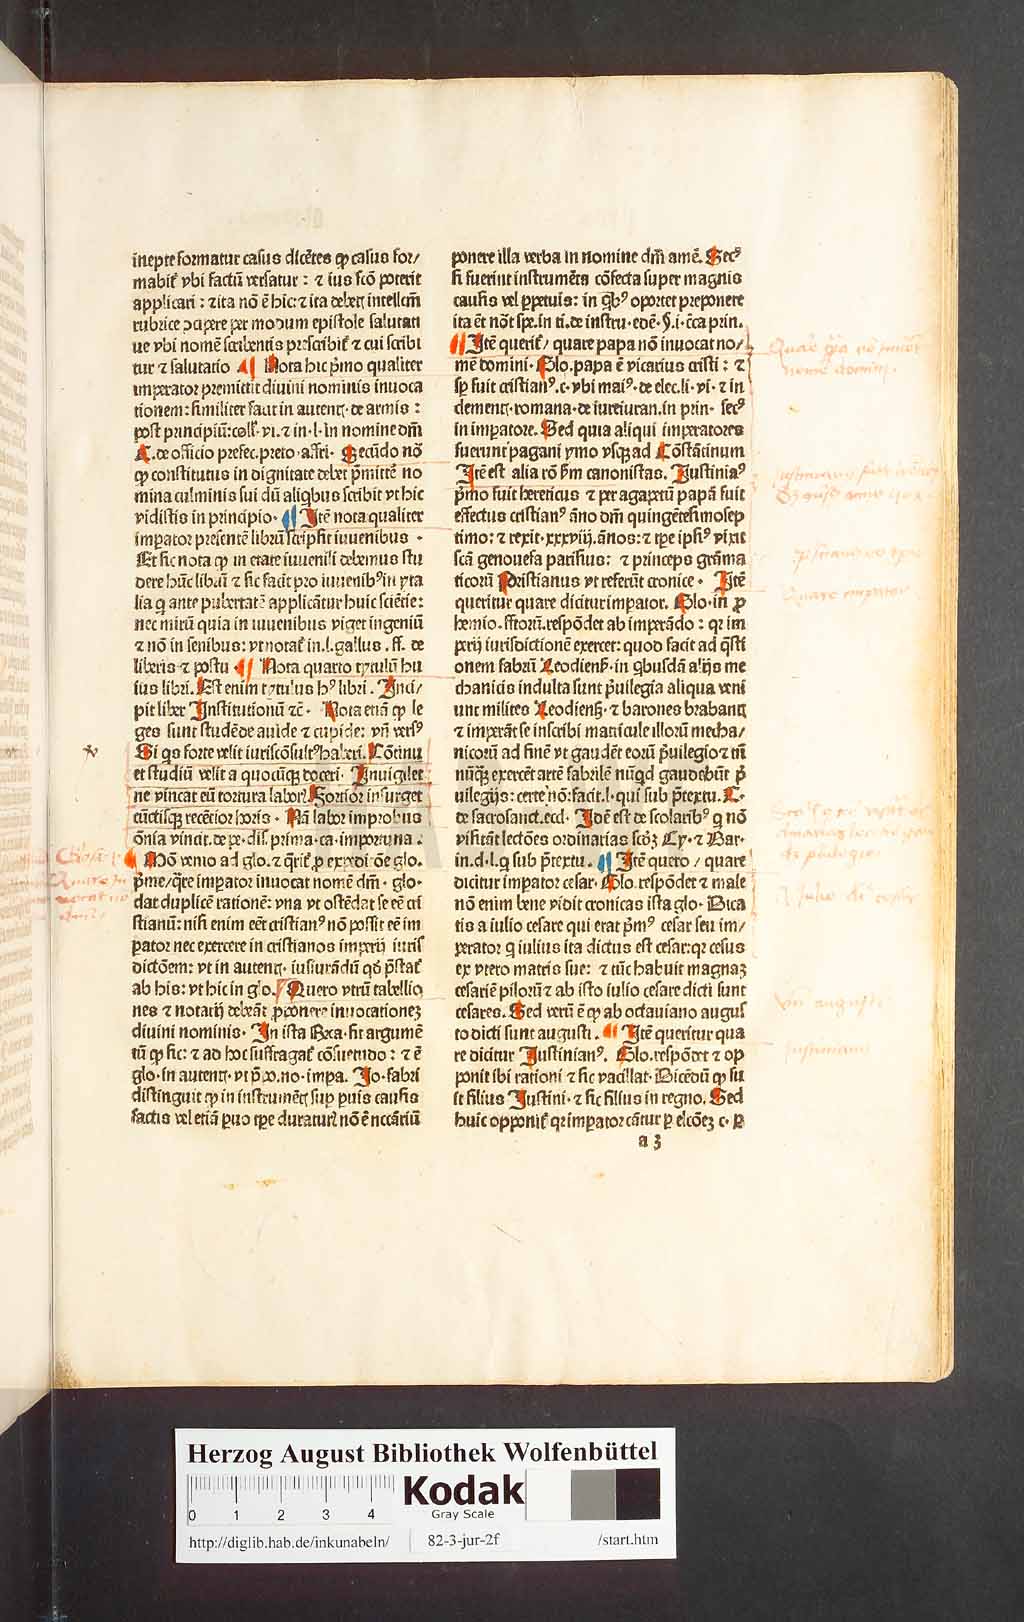 inepte formatur casus dicẽtes ꝙ casus for/
mabiẗ ybi factũ versatur : ⁊ ius scõ poterit
applicari : ⁊ ita nõ ẽ hic: ⁊ ita debet intellcm̃
rubrice ꝯcipere per modum epistole salutati
ue ybi nomẽ scribentis prescribiẗ ⁊ cui scribi
tur ⁊ salutatio ¶ Nota hic p̃mo qualiter
imperator premictit diuini nominis inuoca
tionem: similiter facit in autent. de armis :
post principiũ: coll. vi. ⁊ in .l. In nomine dm̃
C. de officio prefec. preto. affri. Secũdo no᷑
ꝙ constitutus in dignitate debet p̃mittẽ no
mina culminis sui dũ aliqbus scribit vt hic
vidistis in principio. ¶ Itẽ nota qualiter
impator presentẽ librũ scripsit iuuenibus .
Et sic nota ꝙ in etate iuuenili debemus stu
dere hũc librũ ⁊ sic facit pro iuuenibꝰ in yta
lia q̃ ante pubertatẽ applicãtur huic sciẽtie:
nec mirũ quia in iuuenibus viget ingeniũ
⁊ nõ in senibus: vt notaẗ in .l. gallus . ff. de
liberis ⁊ postu ¶ Nota quarto tytulũ hu
ius libri. Est enim tytulus hꝰ libri . Inci/
pit liber Institutionũ ⁊c̃ . Nota etiã ꝙ le
ges sunt studẽde auide ⁊ cupide: vñ versꝰ
Si qs forte velit iuriscõsultꝰ haberi. Cõtinu
et studiũ velit a quocũqꝫ doceri. Inuigilet
ne vincat eũ tortura laborꝝ Fortior insurget
cũctisqꝫ recẽtior horis . Nã labor improbus
õnia vincit. de pe. dis. prima. ca. importuna :
Mõ venio ad glo. ⁊ q̃riẗ ꝓ expedi õe glo.
p̃me/ q̃re impator inuocat nomẽ dm̃ . glo.
dat duplicẽ rationẽ: vna vt ostẽdat se eẽ cri
stianũ: nisi enim eẽt cristianꝰ nõ possit eẽ im
perator nec exercere in cristianos imperij iuris
dictõem: vt in autent. iusiurãdũ qd̃ p̃staẗ
ab his: vt hic in glo. Quero vtrũ tabellio
nes ⁊ notarij debeãt ꝓponere inuocationeꝫ
diuini nominis . In ista sit argumẽ
tũ ꝙ sic: ⁊ ad hoc suffragaẗ cõsuetudo : ⁊ ẽ
glo. in autent. vt p̃po. no. impa. Jo. fabri
distinguit ꝙ in instrumẽt̃ sup puis causis
factis vel etiã paruo tpe duraturꝝ nõ ẽ nccãriũ
ponere illa verba in nomine dm̃ amẽ. Secꝰ
si fuerint instrumẽta cõfecta super magnis
causis vel ꝑpetuis: in qbꝰ oportet preponere
ita ẽt noẗ spe. in ti. de instru. edẽ. §. i. c̃ca prin.
¶ Itẽ queriẗ/ quare papa nõ inuocat no/
mẽ domini . Glo. papa ẽ vicarius cristi : ⁊
sp̃ fuit cristianꝰ .c. vbi maiꝰ . de elec. li. vi. ⁊ in
clement. romana. de iureiuran. in prin. secꝰ
in imperatore. Sed quia aliqui imperatores
fuerunt pagani ymo vsqꝫ ad Cõstãtinum
Itẽ est alia rõ ẜm canonistas. Justiniaꝰ
p̃mo fuit hereticus ⁊ per agapetũ papã fuit
effectus cristianꝰ ãno dm̃ quingẽtesimosep
timo: ⁊ rexit .xxxviij. ãnos: ⁊ tpe ipsiꝰ vixit
scã genouefa parisius: ⁊ princeps grãma
ticorũ Pristianus vt referũt cronice . Itẽ
queritur quare dicitur impator. Glo. in ꝓ
hemio. fftorũ. respõdet ab imperãdo : qꝛ im
perij iurisdictionẽ exercet: quod facit ad q̃sti
onem fabrũ Leodienẜ. in qbusdã alijs me
chanicis indulta sunt p̃uilegia aliqua veni
unt milites Leodienẜ . ⁊ barones brabant̃
⁊ imperãt se inscribi matricule illorũ mecha/
nicorũ ad finẽ vt gaudẽt eorũ p̃uilegio ⁊ tñ
nũqꝫ exercẽt artẽ fabrilẽ nũqd gaudebũt p̃
uilegijs: certe nõ: facit .l. qui sub p̃textu. C.
de sacrosanct. eccl . Idẽ est de scolaribꝰ q̃ nõ
visitãt lectões ordinarias scꝫ Cy. ⁊ Bar.
in .d. l. q̃ sub p̃textu. ¶ Itẽ quero / quare
dicitur impator cesar. Glo. respõdet ⁊ male
nõ enim bene vidit cronicas ista glo. Dica
tis a iulio cesare qui erat p̃mꝰ cesar seu im/
perator q̃ iulius ita dictus est cesar: qꝛ cesus
ex vtero matris sue: ⁊ tũc habuit magnaꝫ
cesariẽ pilorũ ⁊ ab isto iulio cesare dicti sunt
cesares. Sed verũ ẽ ꝙ ab octauiano augus
to dicti sunt augusti. ¶ Itẽ queritur qua
re dicitur Justinianꝰ. Glo. respõdet ⁊ op
ponit sibi rationi ⁊ sic vacillat. Dicẽdũ ꝙ fu
it filius Justini. ⁊ sic filius in regno. Sed
huic opponiẗ qꝛ imperator cãtur ꝑ elcõeꝫ c. ꝑ
a 3
Herzog August Bibliothek Wolfenbüttel
0 1 2 3 4
Kodak
Gray Scale
http://diglib.hab.de/inkunabeln/ 82-3-jur-2f /start.htm